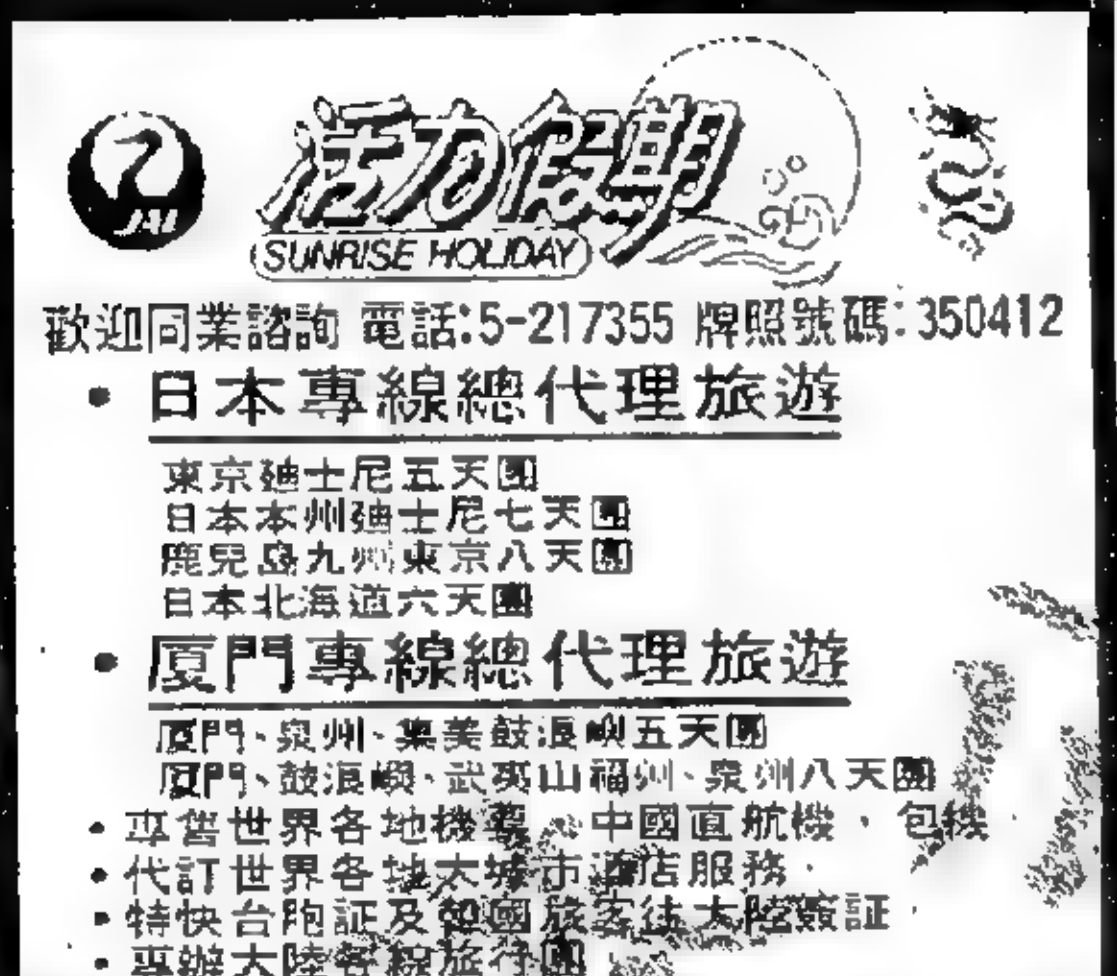 JAL
活力假期
SUNRISE HOLIDAY
歡迎同業諮詢 電話:5-217355 牌照號碼:350412
• 日本專線總代理旅遊
東京廸士尼五天團
日本本州廸士尼七天團
鹿兒島九州東京八天團
日本北海道六天團
• 厦門專線總代理旅遊
厦門、泉州、集美鼓浪嶼五天團
厦門、鼓浪嶼、武夷山福州、泉州八天團
• 專售世界各地機票 中國直航機,包機
• 代訂世界各地大城市酒店服務
• 特快台胞証及韓國旅客往大陸簽証
• 專辦大陸各線旅行團